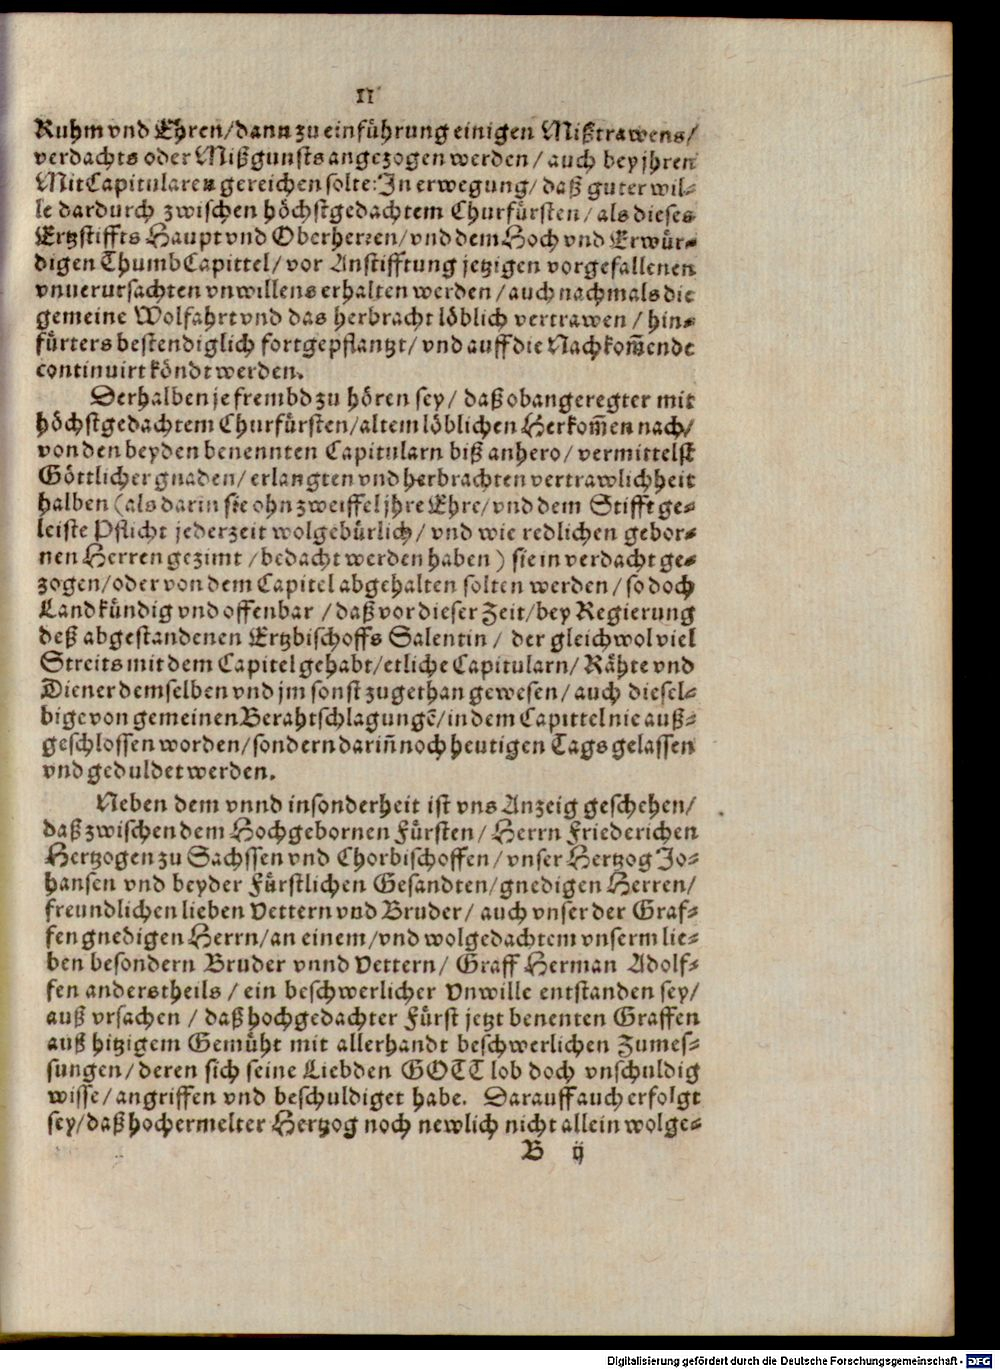 11
Ruhm vnd Ehren/dann zu einführung einigen Mißtrawens/
verdachts oder Mißgunsts angezogen werden/ auch bey jhren
MitCapitularen gereichen solte: In erwegung/ daß guter wil-
le dardurch zwischen höchstgedachtem Churfürsten/ als dieses
Ertzstiffts Haupt vnd Oberherren/ vnd dem Hoch vnd Erwür-
digen ThumbCapittel/ vor Anstifftung jetzigen vorgefallenen
vnuerursachten vnwillens erhalten werden/ auch nachmals die
gemeine Wolfahrt vnd das herbracht löblich vertrawen/ hin-
fürters bestendiglich fortgepflantzt/ vnd auff die Nachkom̃ende
continuirt köndt werden.
Derhalben je frembd zu hören sey/ daß obangeregter mit
höchstgedachtem Churfürsten/ altem löblichen Herkom̃en nach/
von den beyden benennten Capitularn biß anhero/ vermittelst
Göttlicher gnaden/ erlangten vnd herbrachten vertrawlichheit
halben (als darin sie ohn zweiffel jhre Ehre/ vnd dem Stifft ge-
leiste Pflicht jederzeit wolgebürlich/ vnd wie redlichen gebor-
nen Herren gezimt/ bedacht werden haben) sie in verdacht ge-
zogen/ oder von dem Capitel abgehalten solten werden/ so doch
Landkündig vnd offenbar/ daß vor dieser Zeit/ bey Regierung
deß abgestandenen Ertzbischoffs Salentin/ der gleichwol viel
Streits mit dem Capitel gehabt/ etliche Capitularn/ Rähte vnd
Diener demselben vnd jm sonst zugethan gewesen/ auch diesel-
bige von gemeinen Berahtschlagungẽ/ in dem Capittel nie auß-
geschlossen worden/ sondern darin̄ noch heutigen Tags gelassen
vnd geduldet werden.
Neben dem vnnd insonderheit ist vns Anzeig geschehen/
daß zwischen dem Hochgebornen Fürsten/ Herrn Friederichen
Hertzogen zu Sachssen vnd Chorbischoffen/ vnser Hertzog Jo-
hansen vnd beyder Fürstlichen Gesandten/ gnedigen Herren/
freundlichen lieben Vettern vnd Bruder/ auch vnser der Graf-
fen gnedigen Herrn/ an einem/ vnd wolgedachtem vnserm lie-
ben besondern Bruder vnnd Vettern/ Graff Herman Adolf-
fen anderstheils/ ein beschwerlicher Vnwille entstanden sey/
auß vrsachen/ daß hochgedachter Fürst jetzt benenten Graffen
auß hitzigem Gemüht mit allerhandt beschwerlichen Zumes-
sungen/ deren sich seine Liebden GOTT lob doch vnschuldig
wisse/ angriffen vnd beschuldiget habe. Darauff auch erfolgt
sey/ daß hochermelter Hertzog noch newlich nicht allein wolge-
B ij
Digitalisierung gefördert durch die Deutsche Forschungsgemeinschaft - DFG